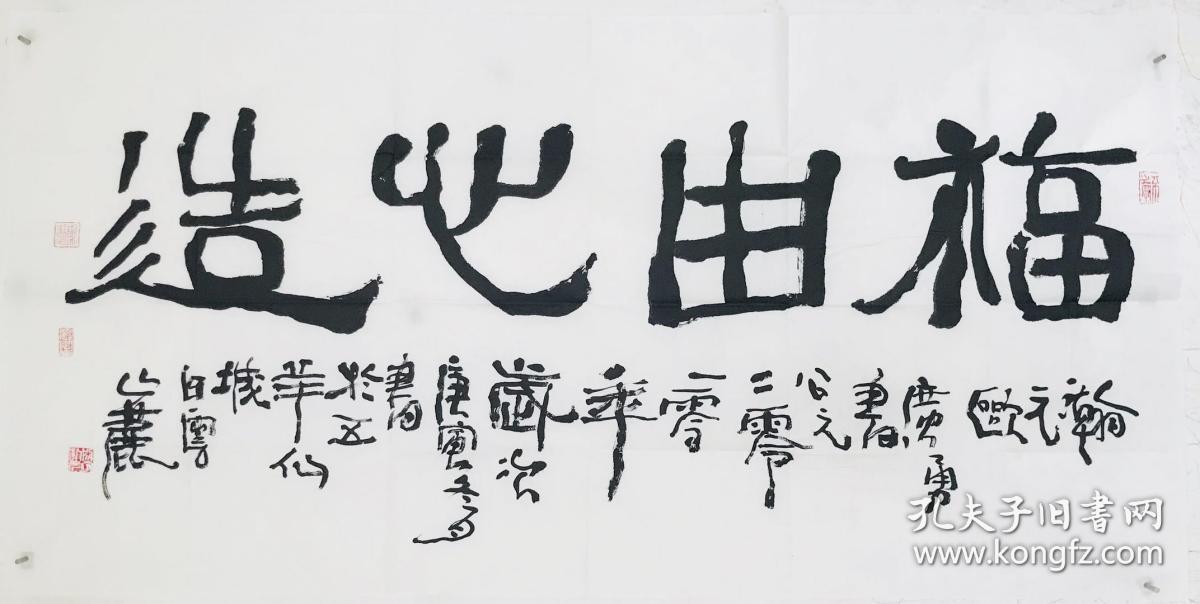 福由心造
瀚元
歐
廣勇
書
公元
二零
一零
年
歲次
庚寅冬月
書
於五
羊仙
城
白雲
山麓
孔夫子旧書网
www.kongfz.com